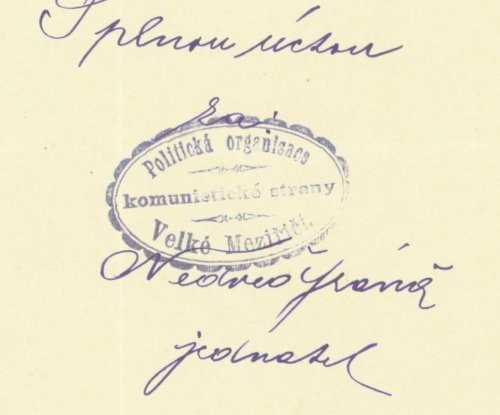 S plnou úctou
za:
Politická organisace
komunistické strany
Velké Meziříčí.
jednatel